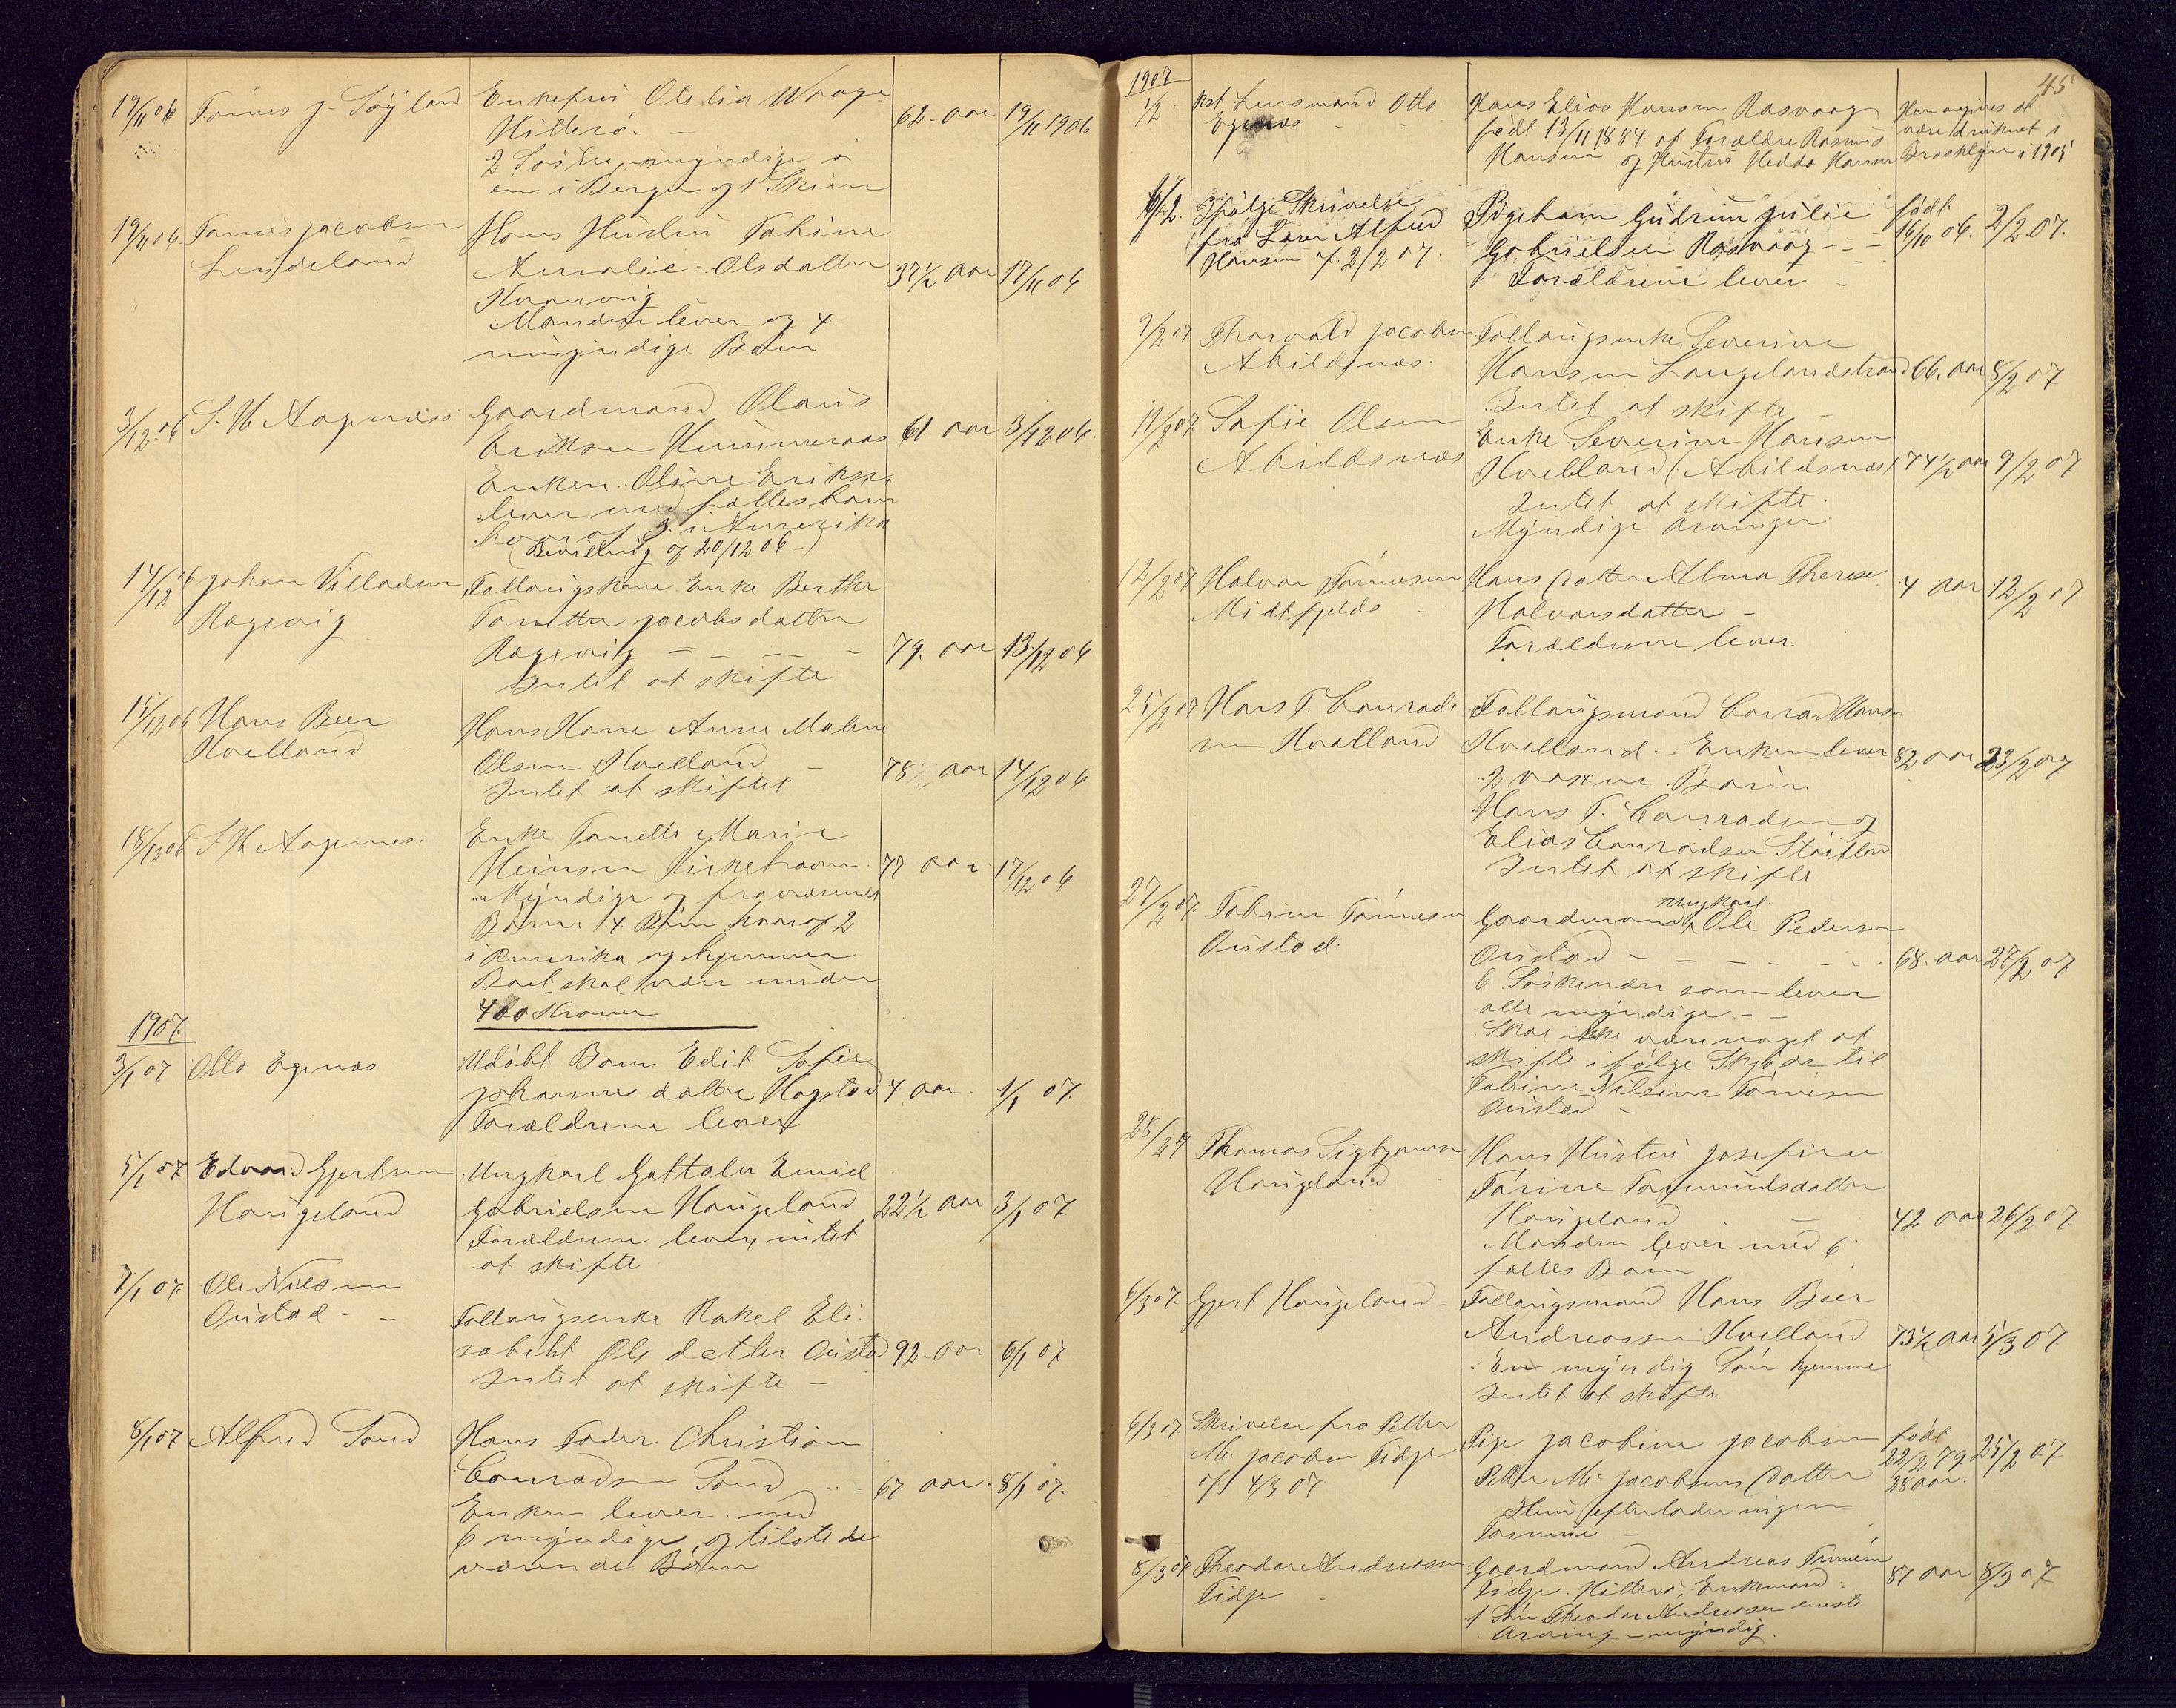 19/11 06 Tønnes J. Søyland Enkefru Otelia Waage 62 aar 19/11 1906
Hitterø. -
2 Søstre, myndige
en i Bergen og 1 i Skien
19/11 06 Tønnes Jacobsen Hans Hustru Tobine
Lindeland Amalie Olsdatter 37 1/2 aar 17/11 06
Manden lever og 4
umyndige Børn
3/12 06 S. H. Aagenæs Gaardmand Olaus
Eriksen Hummeraas 61 aar 3/12 06
Enken Oline Eriksen
lever med fælles barn
hvoraf 3 i Amerika
(Bevilling af 20/12 06 -)
14/12 06 Johan Villadsen Følaugskone Enke Berthe
Rægevig Tonette Jacobsdatter
Rægevig - - - 79 aar 13/12 06
Intet at skifte
15/12 06 Hans Beer Hans Kone Anne Malene
Hvelland Olsen Hvelland - 78 aar 14/12 06
Intet at skifte
18/12 06 S. H. Aagenæs. Enke Tonette Marie
Heinsen Kirkehavn 77 aar 17/12 06
Myndige og fraværende
Børn. 4 Børn hvoraf 2
i Amerika og hjemme
Boet skal være under
400 Kroner
1907
3/1 07 Otto Egenæs Udøbt Barn Edit Sofie
Johannesdatter Hogstad 4 aar. 1/1 07
Forældrene lever
5/1 07 Edvard Gjertsen Ungkarl Gottolu Emiel
Haugeland Gabrielsen Haugeland 22 1/2 aar 3/1 07
Forældrene lever, intet
at skifte
7/1 07 Ole Nilsen
Oustad - - Føllaugsenke Rakel Eli
sabeht Olsdatter Oustad 92 aar 6/1 07
Intet at skifte -
8/1 07 Alfred Sand Hans Fader Christian
Conradsen Sand 67 aar. 8/1 07.
Enken lever med
6 myndige og tilstede
værende Børn
45
1907
1/2 Kst. Lensmand Otto Hans Elias Hansen Rasvaag Han angives at
Egenæs - født 13/11 1884 af Forældre Rasmus være druknet i
Hansen og Hustru Hedda Hansen Brooklyn i 1905
6/2. Ifølge Skrivelse Pigebarn Gudrun Julie født
fra Lærer Alfred Gabrielsen Rasvaag - - 16/10 06. 2/2 07.
Hansen af 2/2 07. Forældrene lever -
9/2 07 Thorvald Jacobsen Føllaugsenke Severine
Abildsnæs. Hansen Laugelandstrand 66 aar 8/2 07
Intet at skifte -
11/2 07 Sofie Olsen Enke Severine Hansen
Abildsnæs Hvelland (Abildsnæs) 74 1/2 aar 9/2 07
Intet at skifte
Myndige Arvinger
12/2 07 Halvor Tønnesen Hans Datter Alma Therese 4 aar 12/2 07
Midtfjeld - Halvorsdatter -
Forældrene lever.
25/2 07 Hans T. Conrad- Føllaugsmand Conrad Hansen
sen Hvelland Hvelland. - Enken lever 82 aar 23/2 07
2 voxne Børn
Hans T. Conradsen og
Elias Conradsen
Intet at skifte
27/2 07 Tobine Tønnesen Gaardmand ungkarl Ole Pedersen
Oustad. Oustad - - - - 68 aar 27/2 07
6 Søskende som lever
alle myndige. - -
Skal ikke være noget at
skifte ifølge Skjøde til
Tobine Nilsine Tønnesen
Oustad -
28/2 07 Thomas Sigbjørnsen Hans Hustru Josefine
Haugeland Torine Tormundsdatter
Haugeland - 42 aar 26/2 07
Manden lever med 6
fælles Børn
6/3 07 Gjert Haugeland - Føllaugsmand Hans Beer
Andreassen Hvelland 73 1/2 aar 5/3 07
En myndig Søn hjemme
Intet at skifte
6/3 07 Skrivelse fra Petter Pige Jacobine Jacobsen født
M. Jacobsen Fidje Petter M. Jacobsens Datter 22/2 79 25/2 07
af 4/3 07 Hun efterlader ingen 28 aar.
Formue -
8/3 07 Theodor Andreassen Gaardmand Andreas Tønnesen 87 aar 8/3 07
Fidje - Fidje. Hitterø, Enkemand.
1 Søn Theodor Andreasen eneste
Arving - myndig.